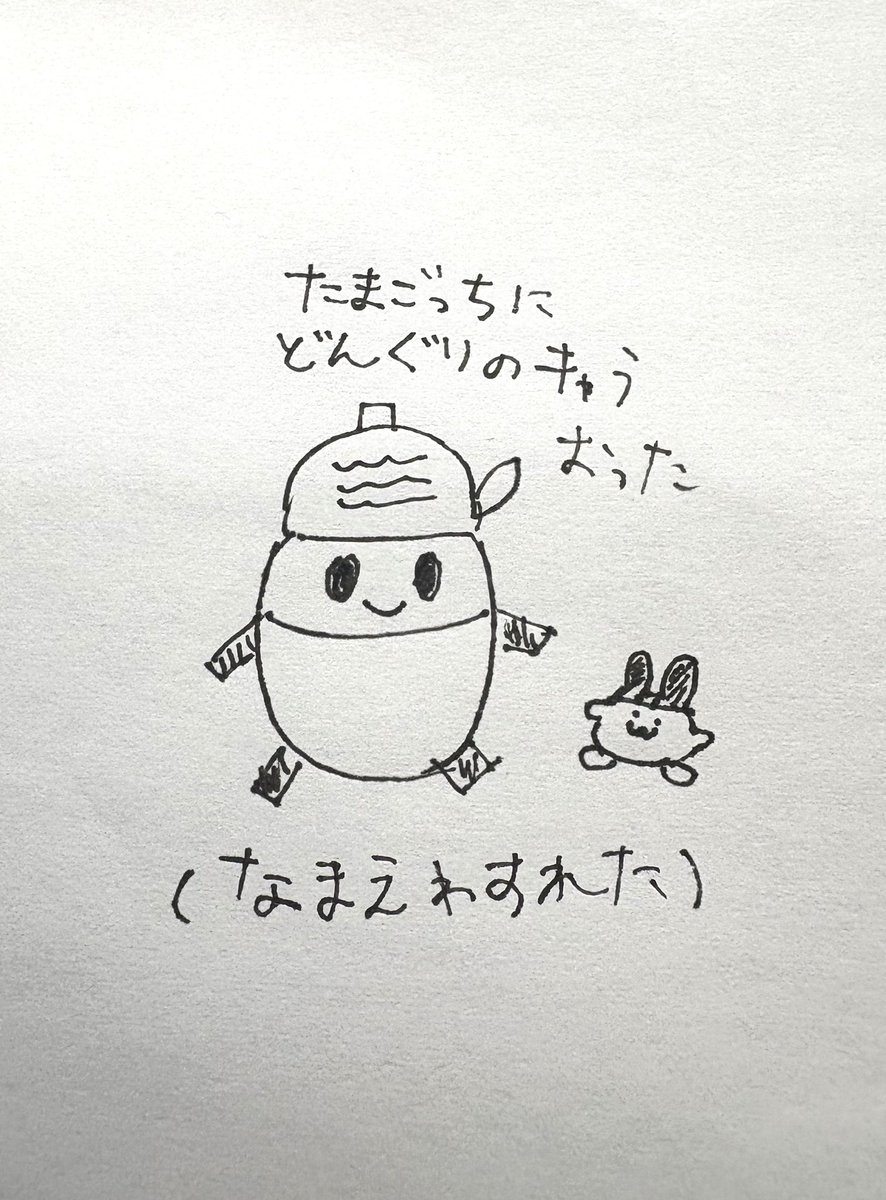 たまごっちに
どんぐりのキャラ
おった
(なまえわすれた)